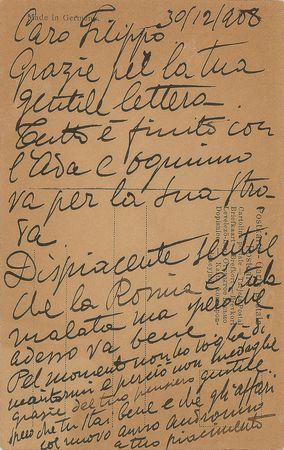 Made in Germany
30/12/908
Caro Filippo
Grazie per la tua
gentile lettera.
Tutto è finito con
l'Ada e ognuno
va per la sua stra-
da
Dispiacente sentire
che la Roma è stata
malata ma spero che
adesso va bene.
Pel momento non ho voglia di
maritarmi e perciò non medaglie
grazie del tuo pensiero gentile
spero che tu stai bene e che gli affari
col nuovo anno andranno
a tuo piacimento